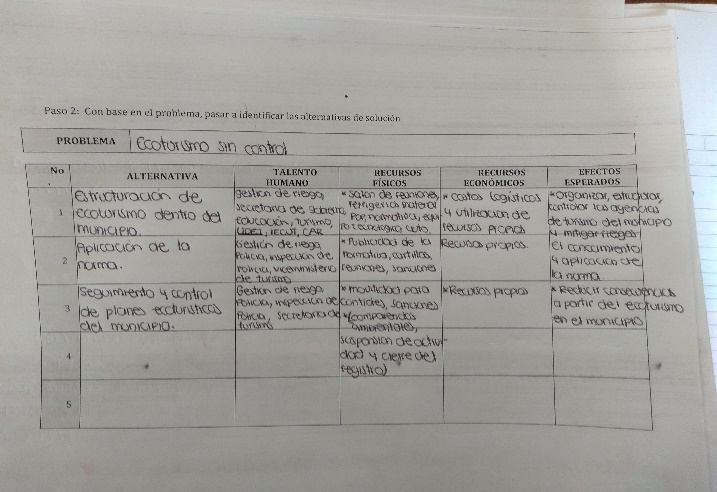 Paso 2: Con base en el problema, pasar a identificar las alternativas de solución
PROBLEMA Ecoturismo sin control
No. ALTERNATIVA TALENTO HUMANO RECURSOS FÍSICOS RECURSOS ECONÓMICOS EFECTOS ESPERADOS
1
Estructuración de
ecoturismo dentro del
municipio.
Gestion de riesgo,
secretaria de gobierno,
educación, turismo,
CAR
* Salon de reuniones,
refrigerios material
Pop, normativa, equi
po tecnologico, auto.
* Costos logísticos
y utilización de
recursos propios
* Organizar, estructurar,
controlar las agencias
de turismo del municipio
y mitigar riesgos
2
Aplicación de la
norma.
Gestión de riesgo
Policia, inspección de
Policia, viceministerio
de turismo
* Publicidad de la
normativa, cartillas,
reuniones, sanciones
Recursos propios.
el conocimiento
y aplicación de
la norma.
3
Seguimiento y control
de planes ecoturisticos
del municipio.
Gestion de riesgo
Policia, inspección de
Policia, secretaria de
turismo
* movilidad para
controles, sanciones
y comparendos
ambientales,
suspension de activi-
dad y cierre del
registro
* Recursos propios
* Reducir consecuencias
a partir del ecoturismo
en el municipio
4
5